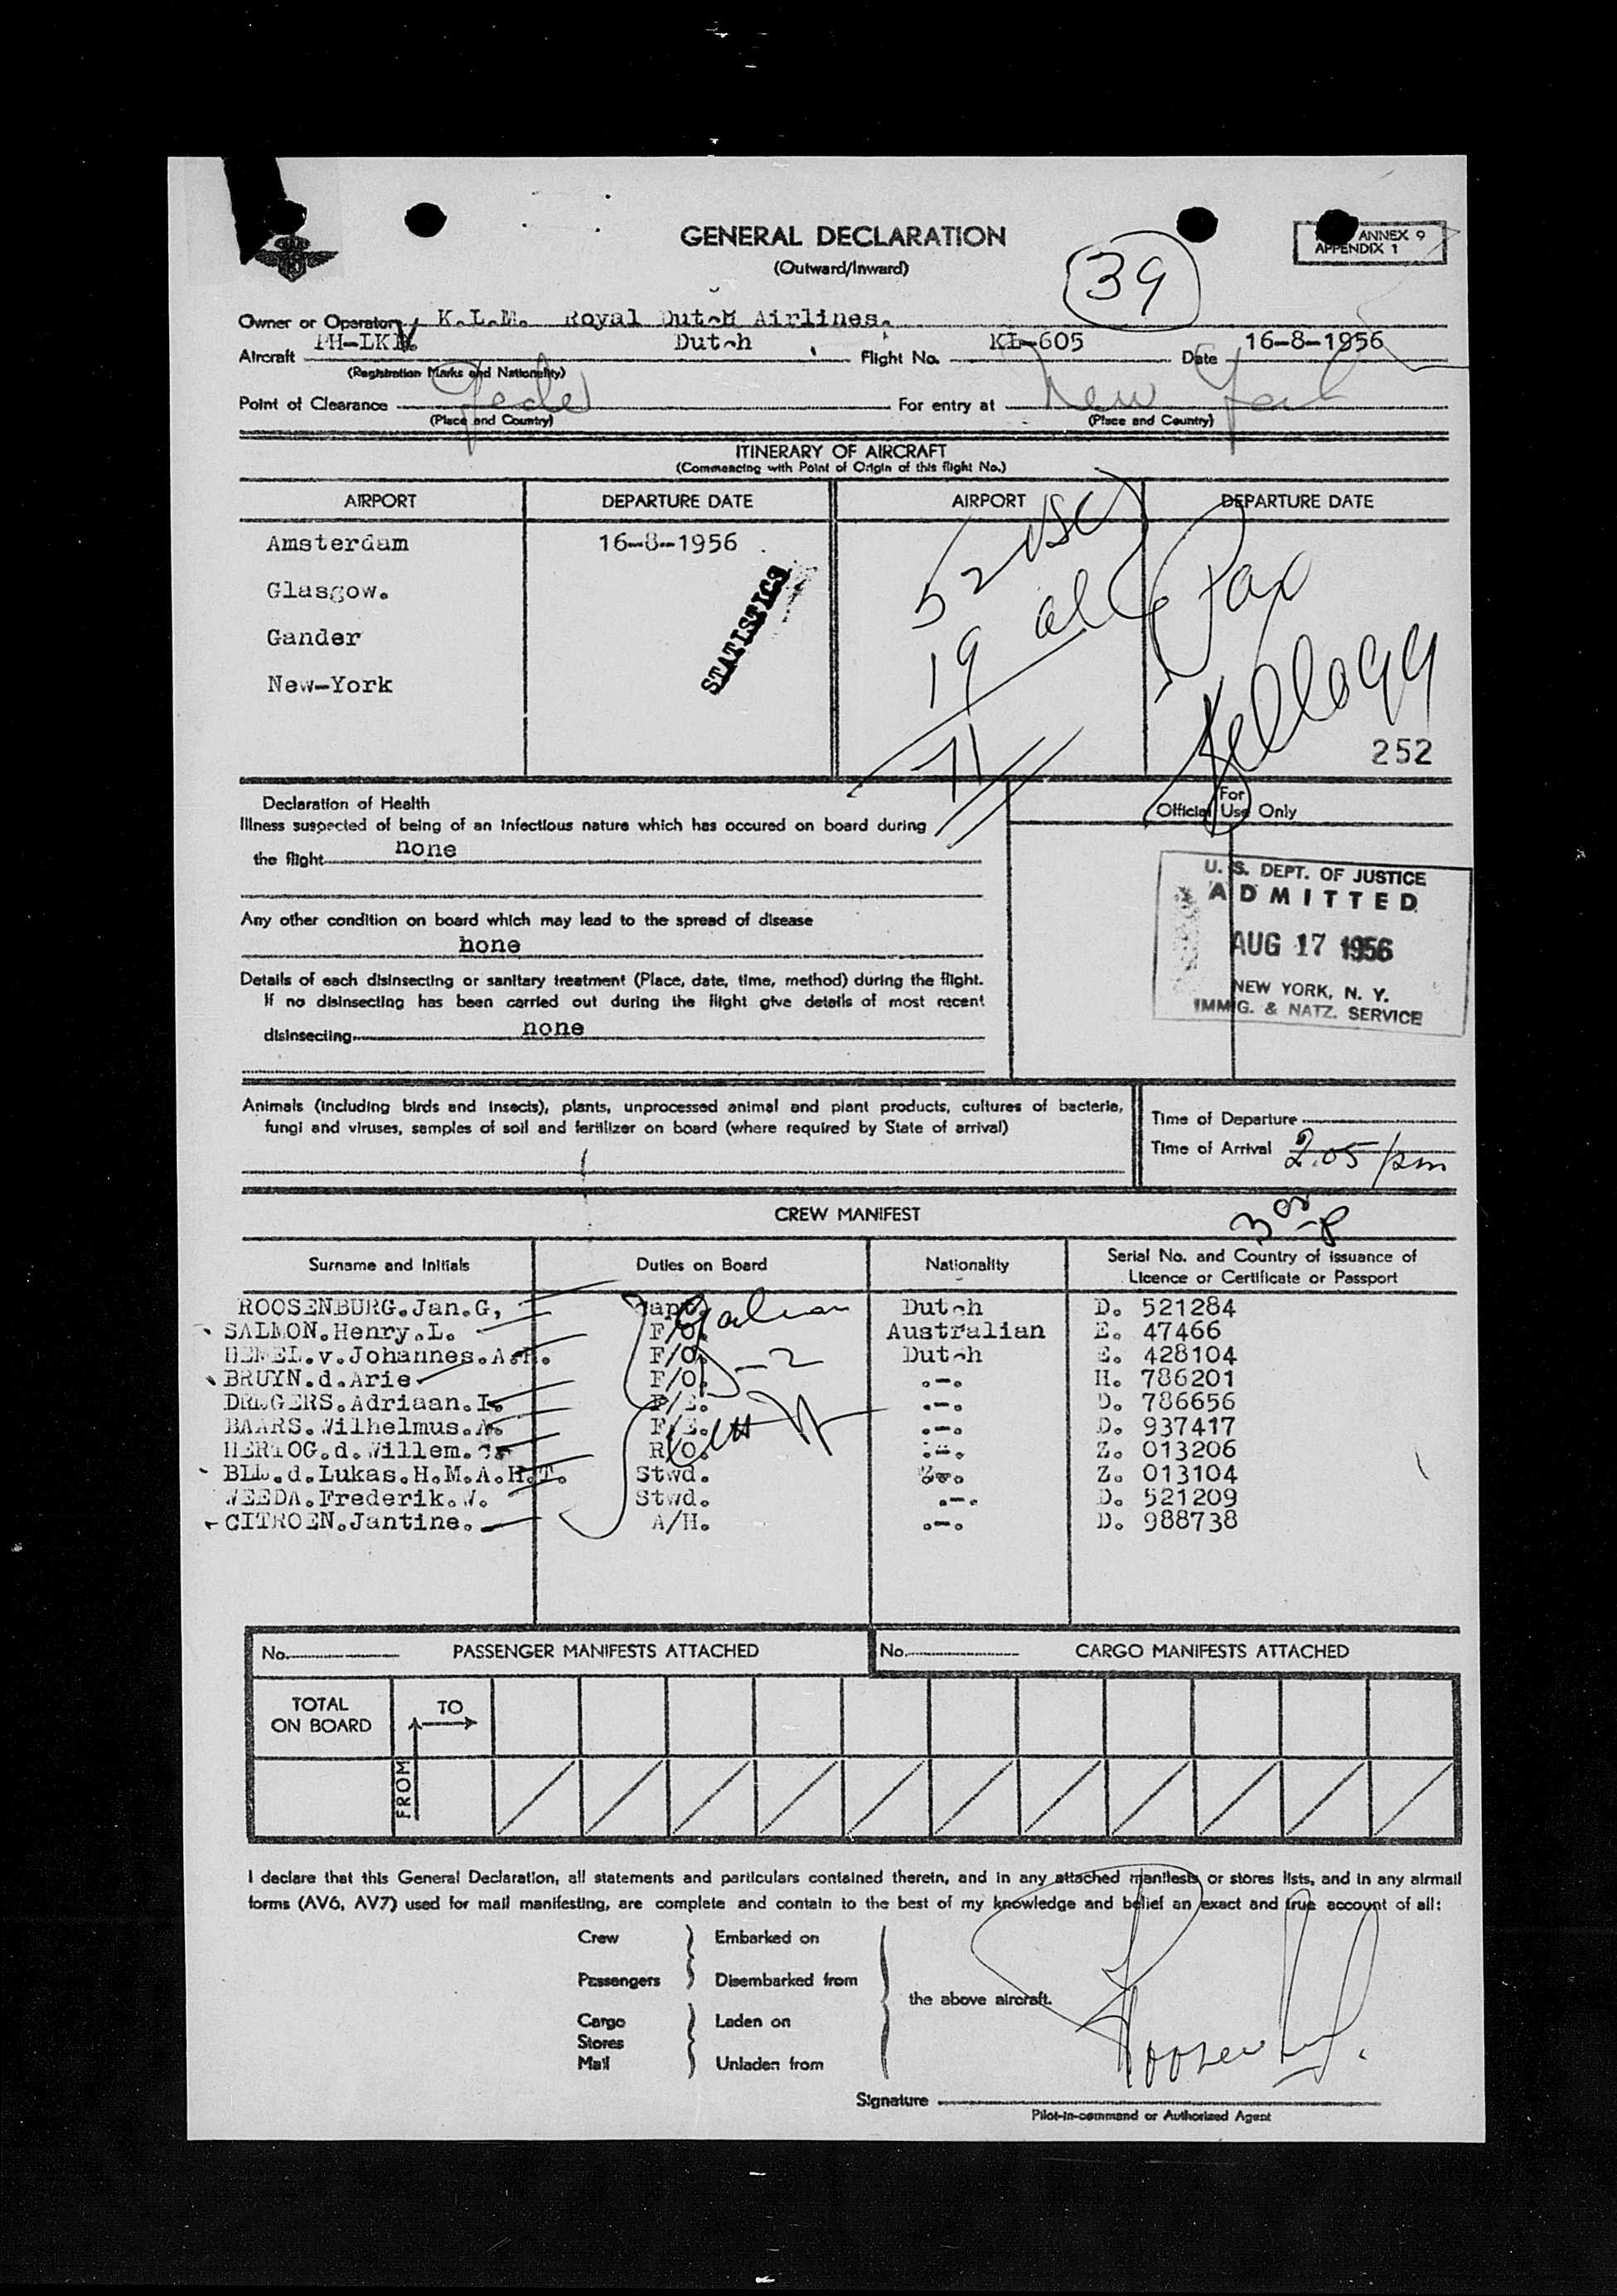 GENERAL DECLARATION
(Outward/Inward)
ANNEX 9
APPENDIX 1
39
Owner or Operator K.L.M. Royal Dutch Airlines.
Aircraft Dutch Flight No. KL-605 Date 16-8-1956
(Registration Marks and Nationality)
Point of Clearance For entry at New York
(Place and Country) (Place and Country)
ITINERARY OF AIRCRAFT
(Commencing with Point of Origin of this flight No.)
AIRPORT DEPARTURE DATE AIRPORT DEPARTURE DATE
Amsterdam 16-8-1956
Glasgow.
Gander
New-York
STATISTICS
52 USC
19 al
71
Pax
Kellogg
252
Declaration of Health
Illness suspected of being of an infectious nature which has occured on board during
the flight none
Any other condition on board which may lead to the spread of disease
none
Details of each disinsecting or sanitary treatment (Place, date, time, method) during the flight.
If no disinsecting has been carried out during the flight give details of most recent
disinsecting none
For
Official Use Only
U. S. DEPT. OF JUSTICE
ADMITTED
AUG 17 1956
NEW YORK, N. Y.
IMMIG. & NATZ. SERVICE
Animals (including birds and insects), plants, unprocessed animal and plant products, cultures of bacteria,
fungi and viruses, samples of soil and fertilizer on board (where required by State of arrival)
Time of Departure
Time of Arrival 2.05 pm
CREW MANIFEST
Surname and Initials Duties on Board Nationality Serial No. and Country of issuance of
Licence or Certificate or Passport
ROOSENBURG.Jan.G, Capt. Dutch D. 521284
SALMON.Henry.L. F/O. Australian E. 47466
HEMEL.v.Johannes.A.H. F/O. Dutch E. 428104
BRUYN.d.Arie F/O. .-. H. 786201
Adriaan.I. F/E. .-. D. 786656
BAARS.Wilhelmus.A. F/E. .-. D. 937417
HERTOG.d.Willem. R/O. .-. Z. 013206
d.Lukas.H.M.A.H.T. Stwd. Z. 013104
WEEDA.Frederik.W. Stwd. .-. D. 521209
CITROEN.Jantine. A/H. .-. D. 988738
No. PASSENGER MANIFESTS ATTACHED No. CARGO MANIFESTS ATTACHED
TOTAL
ON BOARD
TO
FROM
I declare that this General Declaration, all statements and particulars contained therein, and in any attached manifests or stores lists, and in any airmail
forms (AV6, AV7) used for mail manifesting, are complete and contain to the best of my knowledge and belief an exact and true account of all:
Crew Embarked on
Passengers Disembarked from
the above aircraft.
Cargo Laden on
Stores
Mail Unladen from
Roosenburg.
Signature
Pilot-in-command or Authorized Agent